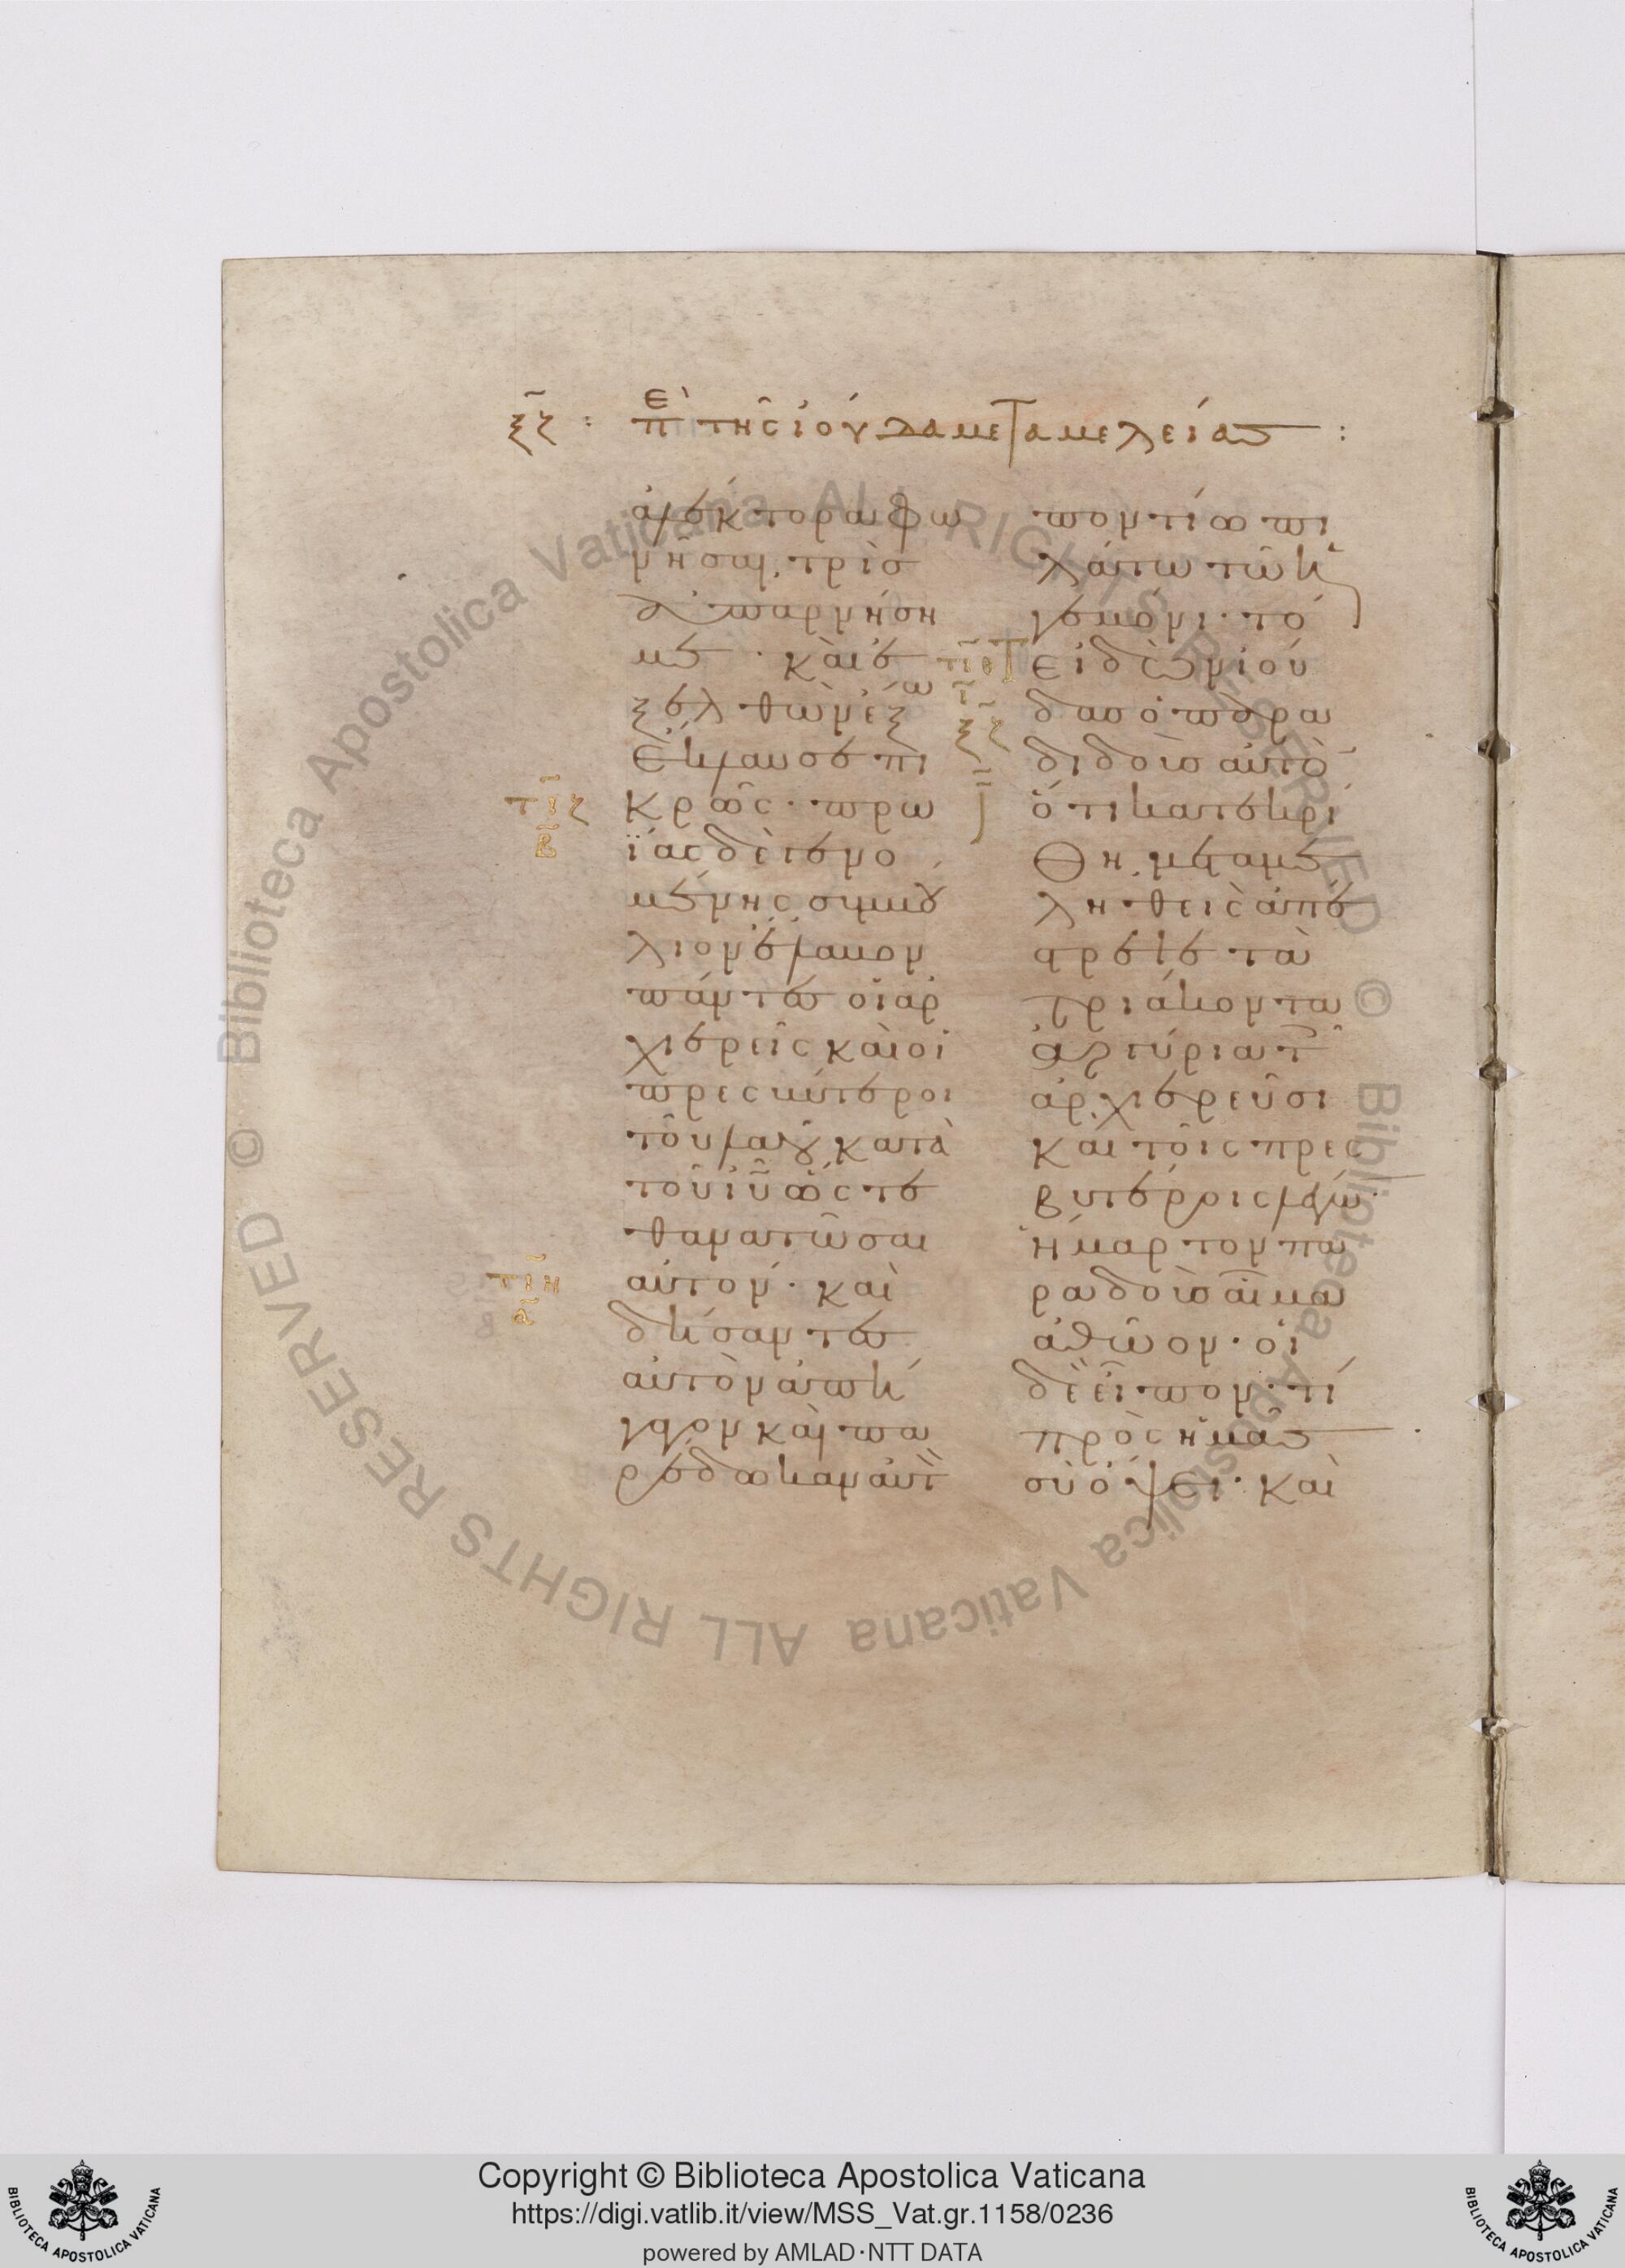 ξζ : Ἐπὶ τῆς ἰούδα μεταμελείας :
ἀλέκτορα φω
νῆσαι, τρὶς
ἀπαρνήση
με · καὶ ἐ
ξελθὼν ἔξω
ἔκλαυσε πι
τιζ
β
κρῶς · πρω
ΐας δὲ γενο
μένης συμβου
λιον ἔλαβον
πάντες οἱ ἀρ
χιερεῖς καὶ οἱ
πρεσβύτεροι
τοῦ λαοῦ κατὰ
τοῦ ιυ ὥστε
θανατῶσαι
τιη
α
αὐτόν · καὶ
δήσαντες
αὐτὸν ἀπή
γαγον καὶ πα
ρέδωκαν αὐτ
ποντίω πι
λάτω τῶ ἡ
γεμόνι · τό
τιθ
ι
ξζ
Τ εἰδὼν ἰού
δας ὁ παρα
διδοὺς αὐτὸ
ὅτι κατεκρί
θη, μεταμε
ληθεὶς ἀπέ
στρεψε τὰ
τριάκοντα
ἀργύρια τ
ἀρχιερεῦσι
καὶ τοῖς πρεσ
βυτέροις λέγω·
ἥμαρτον πα
ραδοὺς αἷμα
ἀθῶον · οἱ
δὲ εἶπον · τί
πρὸς ἡμᾶς
σὺ ὄψει · καὶ
Copyright © Biblioteca Apostolica Vaticana
https://digi.vatlib.it/view/MSS_Vat.gr.1158/0236
powered by AMLAD·NTT DATA
BIBLIOTECA APOSTOLICA VATICANA
BIBLIOTECA APOSTOLICA VATICANA
© Biblioteca Apostolica Vaticana ALL RIGHTS RESERVED © Biblioteca Apostolica Vaticana ALL RIGHTS RESERVED